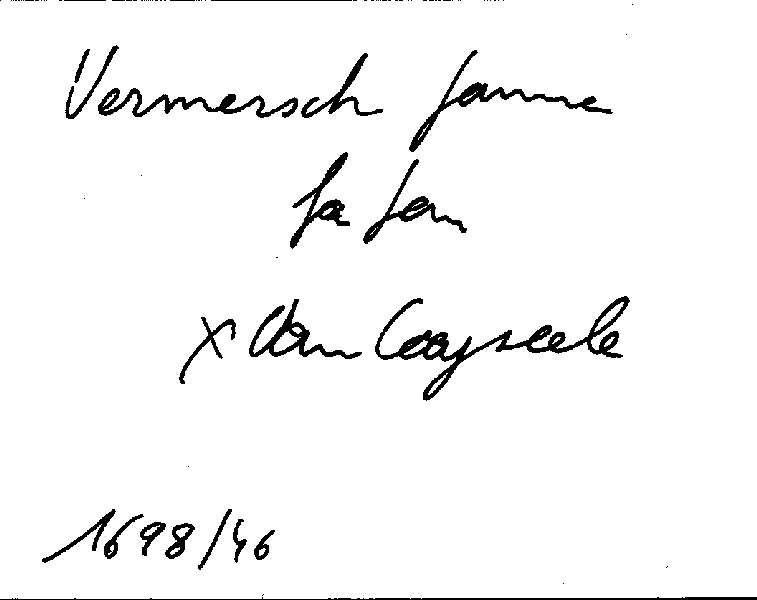 Vermersch Janne
fa Jan
x Van Cooyseele
1698/46